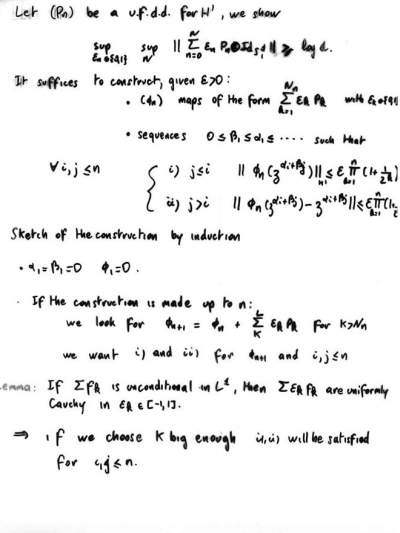 Let (Pn) be a u.f.d.d. for H¹, we show
sup_{εn∈{0,1}} sup_N ‖ Σ_{n=0}^{N} εn Pn⊗Id_{S_1^d} ‖ ⩾ log d.
It suffices to construct, given ε>0:
• (ϕn) maps of the form Σ_{k=1}^{Nn} εk Pk with εk∈{0,1}
• sequences 0 ≤ β1 ≤ α1 ≤ ..... such that
∀ i,j ≤ n { i) j≤i ‖ϕn(z^{αi+βj})‖_{H¹} ≤ ε Π_{k=1}^{n} (1+ 1/2^k)
ii) j>i ‖ϕn(z^{αi+βj}) - z^{αi+βj}‖ ≤ ε Π_{k=1}^{n} (1+
Sketch of the construction by induction
• α1=β1=0 ϕ1=0.
. If the construction is made up to n:
we look for ϕn+1 = ϕn + Σ_{K}^{L} εk Pk for K>Nn
we want i) and ii) for ϕn+1 and i,j≤n
emma: If Σ fk is unconditional in L¹, then Σ εk fk are uniformly
Cauchy in εk ∈ [-1,1].
⇒ if we choose K big enough i), ii) will be satisfied
for i,j ≤ n.